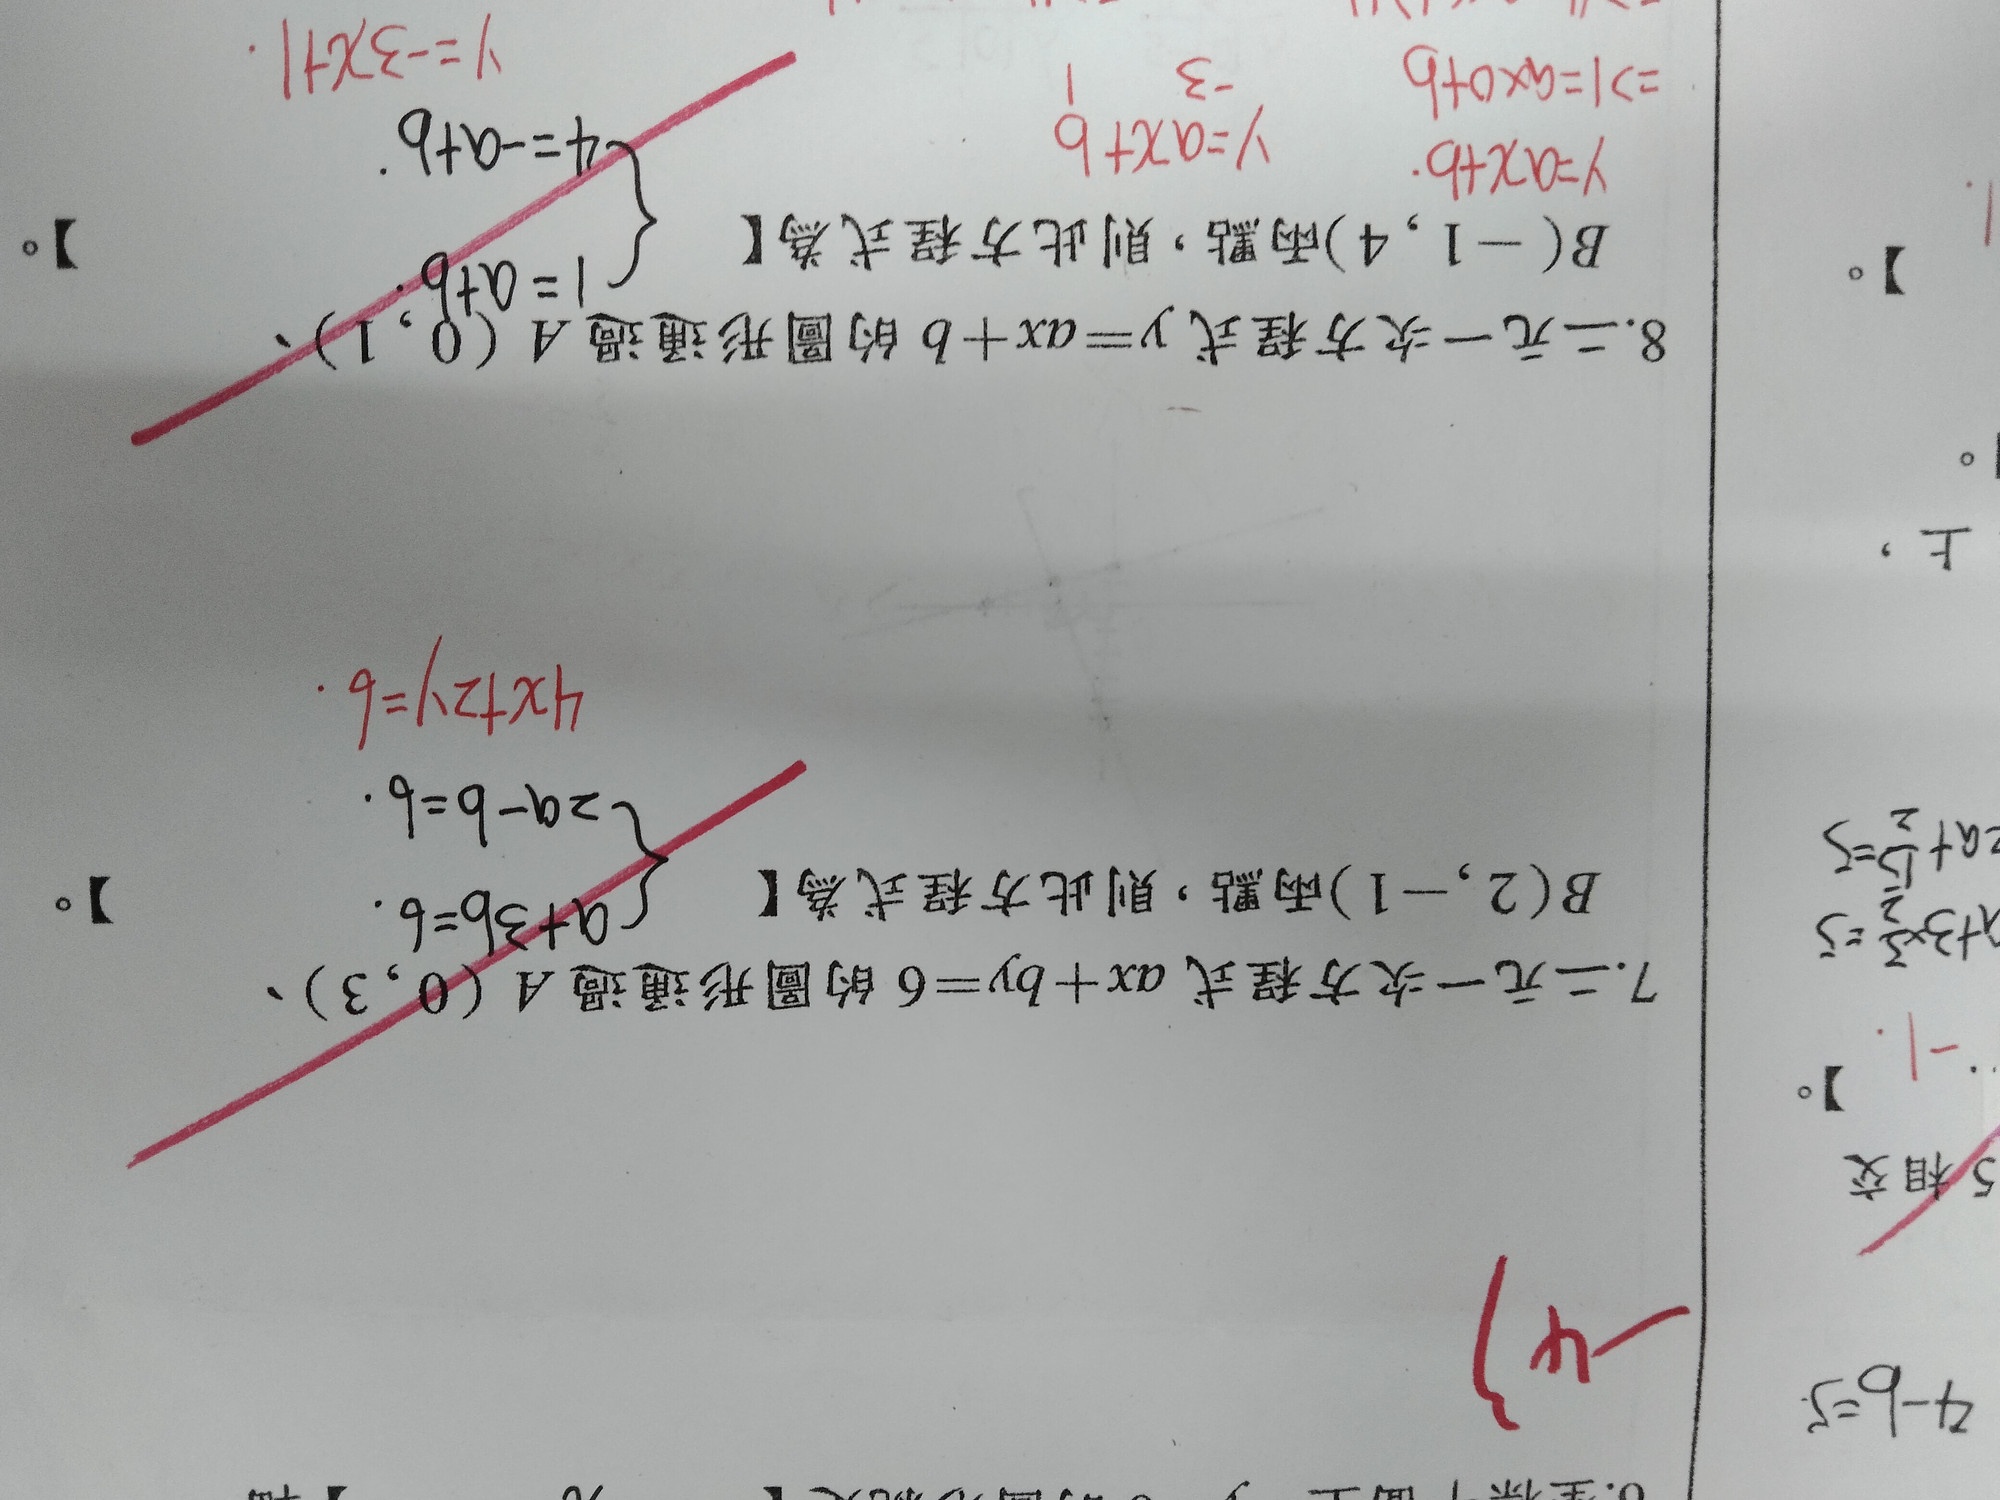 4-b=5
5相交
】。
-1.
a+3×5/2=5
2a+5/2=5
上，
】。
】。
-4
7.二元一次方程式 ax+by=6 的圖形通過 A(0,3)、
B(2,-1)兩點，則此方程式為【 】。
a+3b=6.
2a-b=6.
4x+2y=6.
8.二元一次方程式 y=ax+b 的圖形通過 A(0,1)、
B(-1,4)兩點，則此方程式為【 】。
1=a+b.
4=-a+b.
y=ax+b.
y=ax+b
-3 1
=>1=a×0+b
y=-3x+1.